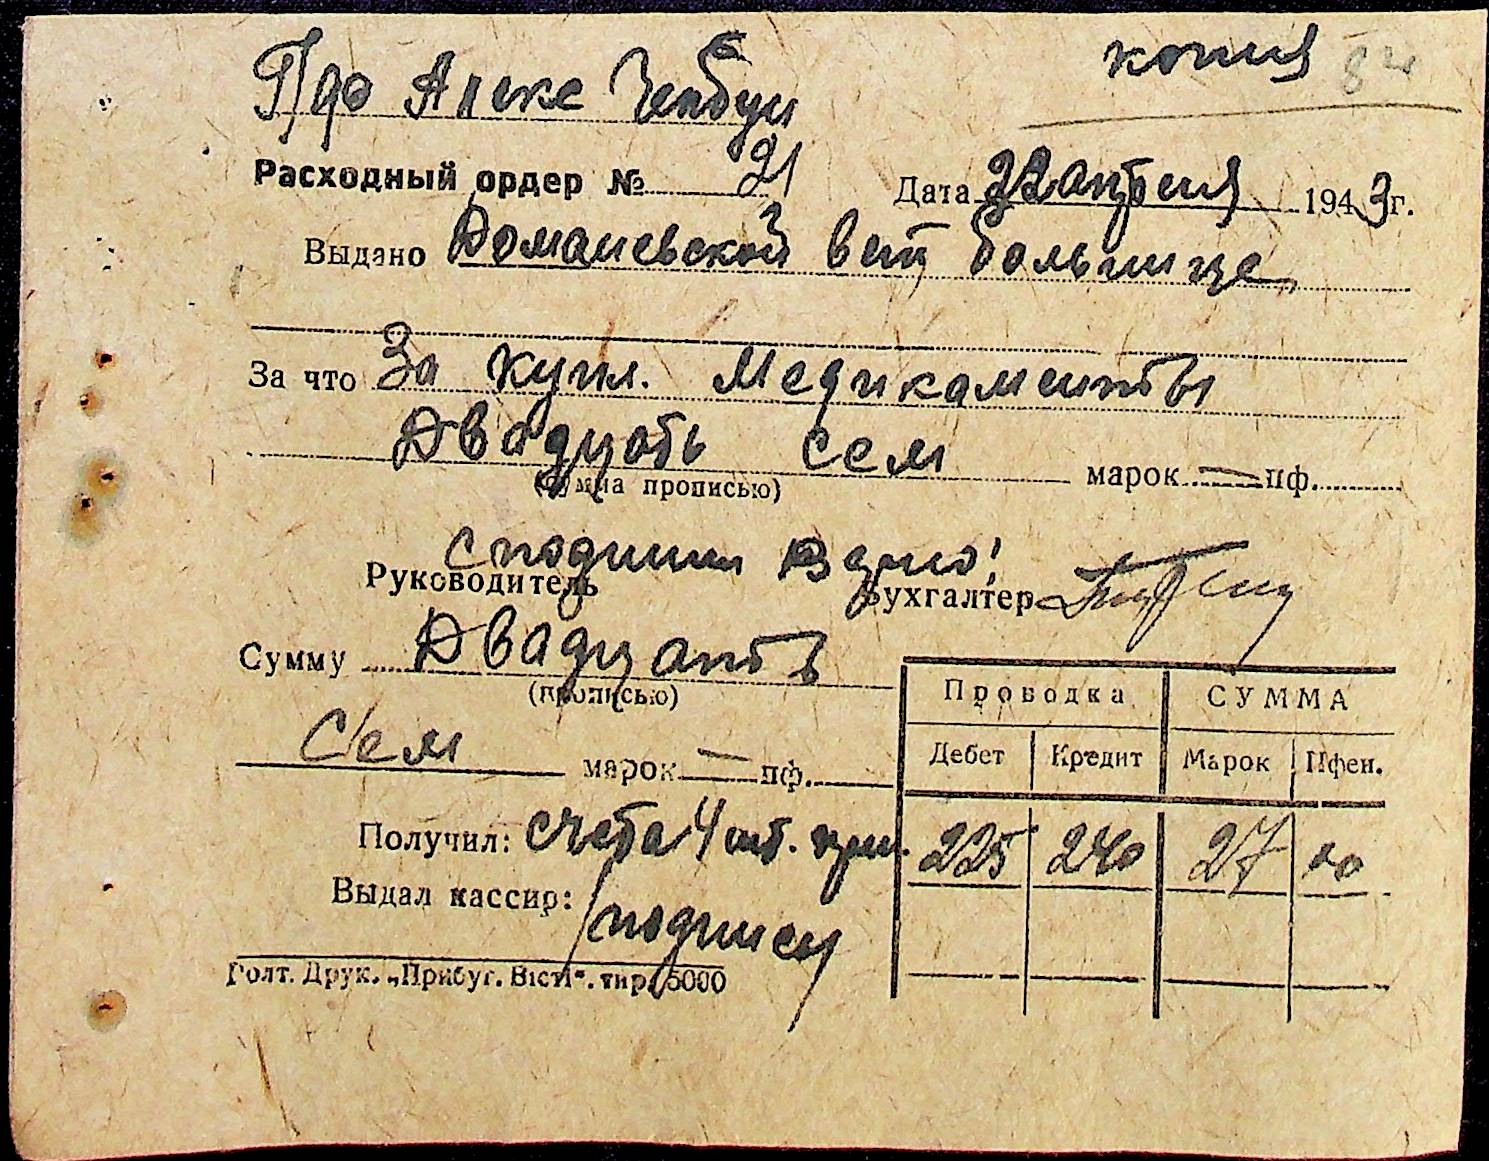 копия 84
Расходный ордер № 21 Дата 22 апреля 1943г.
Выдано Доманевской вет больнице
За что За купл. Медикаменты
Двадцать сем марок — пф.
(сумма прописью)
с подлин верно!
Руководитель Бухгалтер
Сумму Двадцать
(прописью)
Сем марок — пф.
Проводка СУММА
Дебет Кредит Марок Пфен.
Получил: счета 4 шт. при. 225 240 27 00
Выдал кассир: подписи
Голт. Друк. „Прибуг. Вісті“. тир. 5000